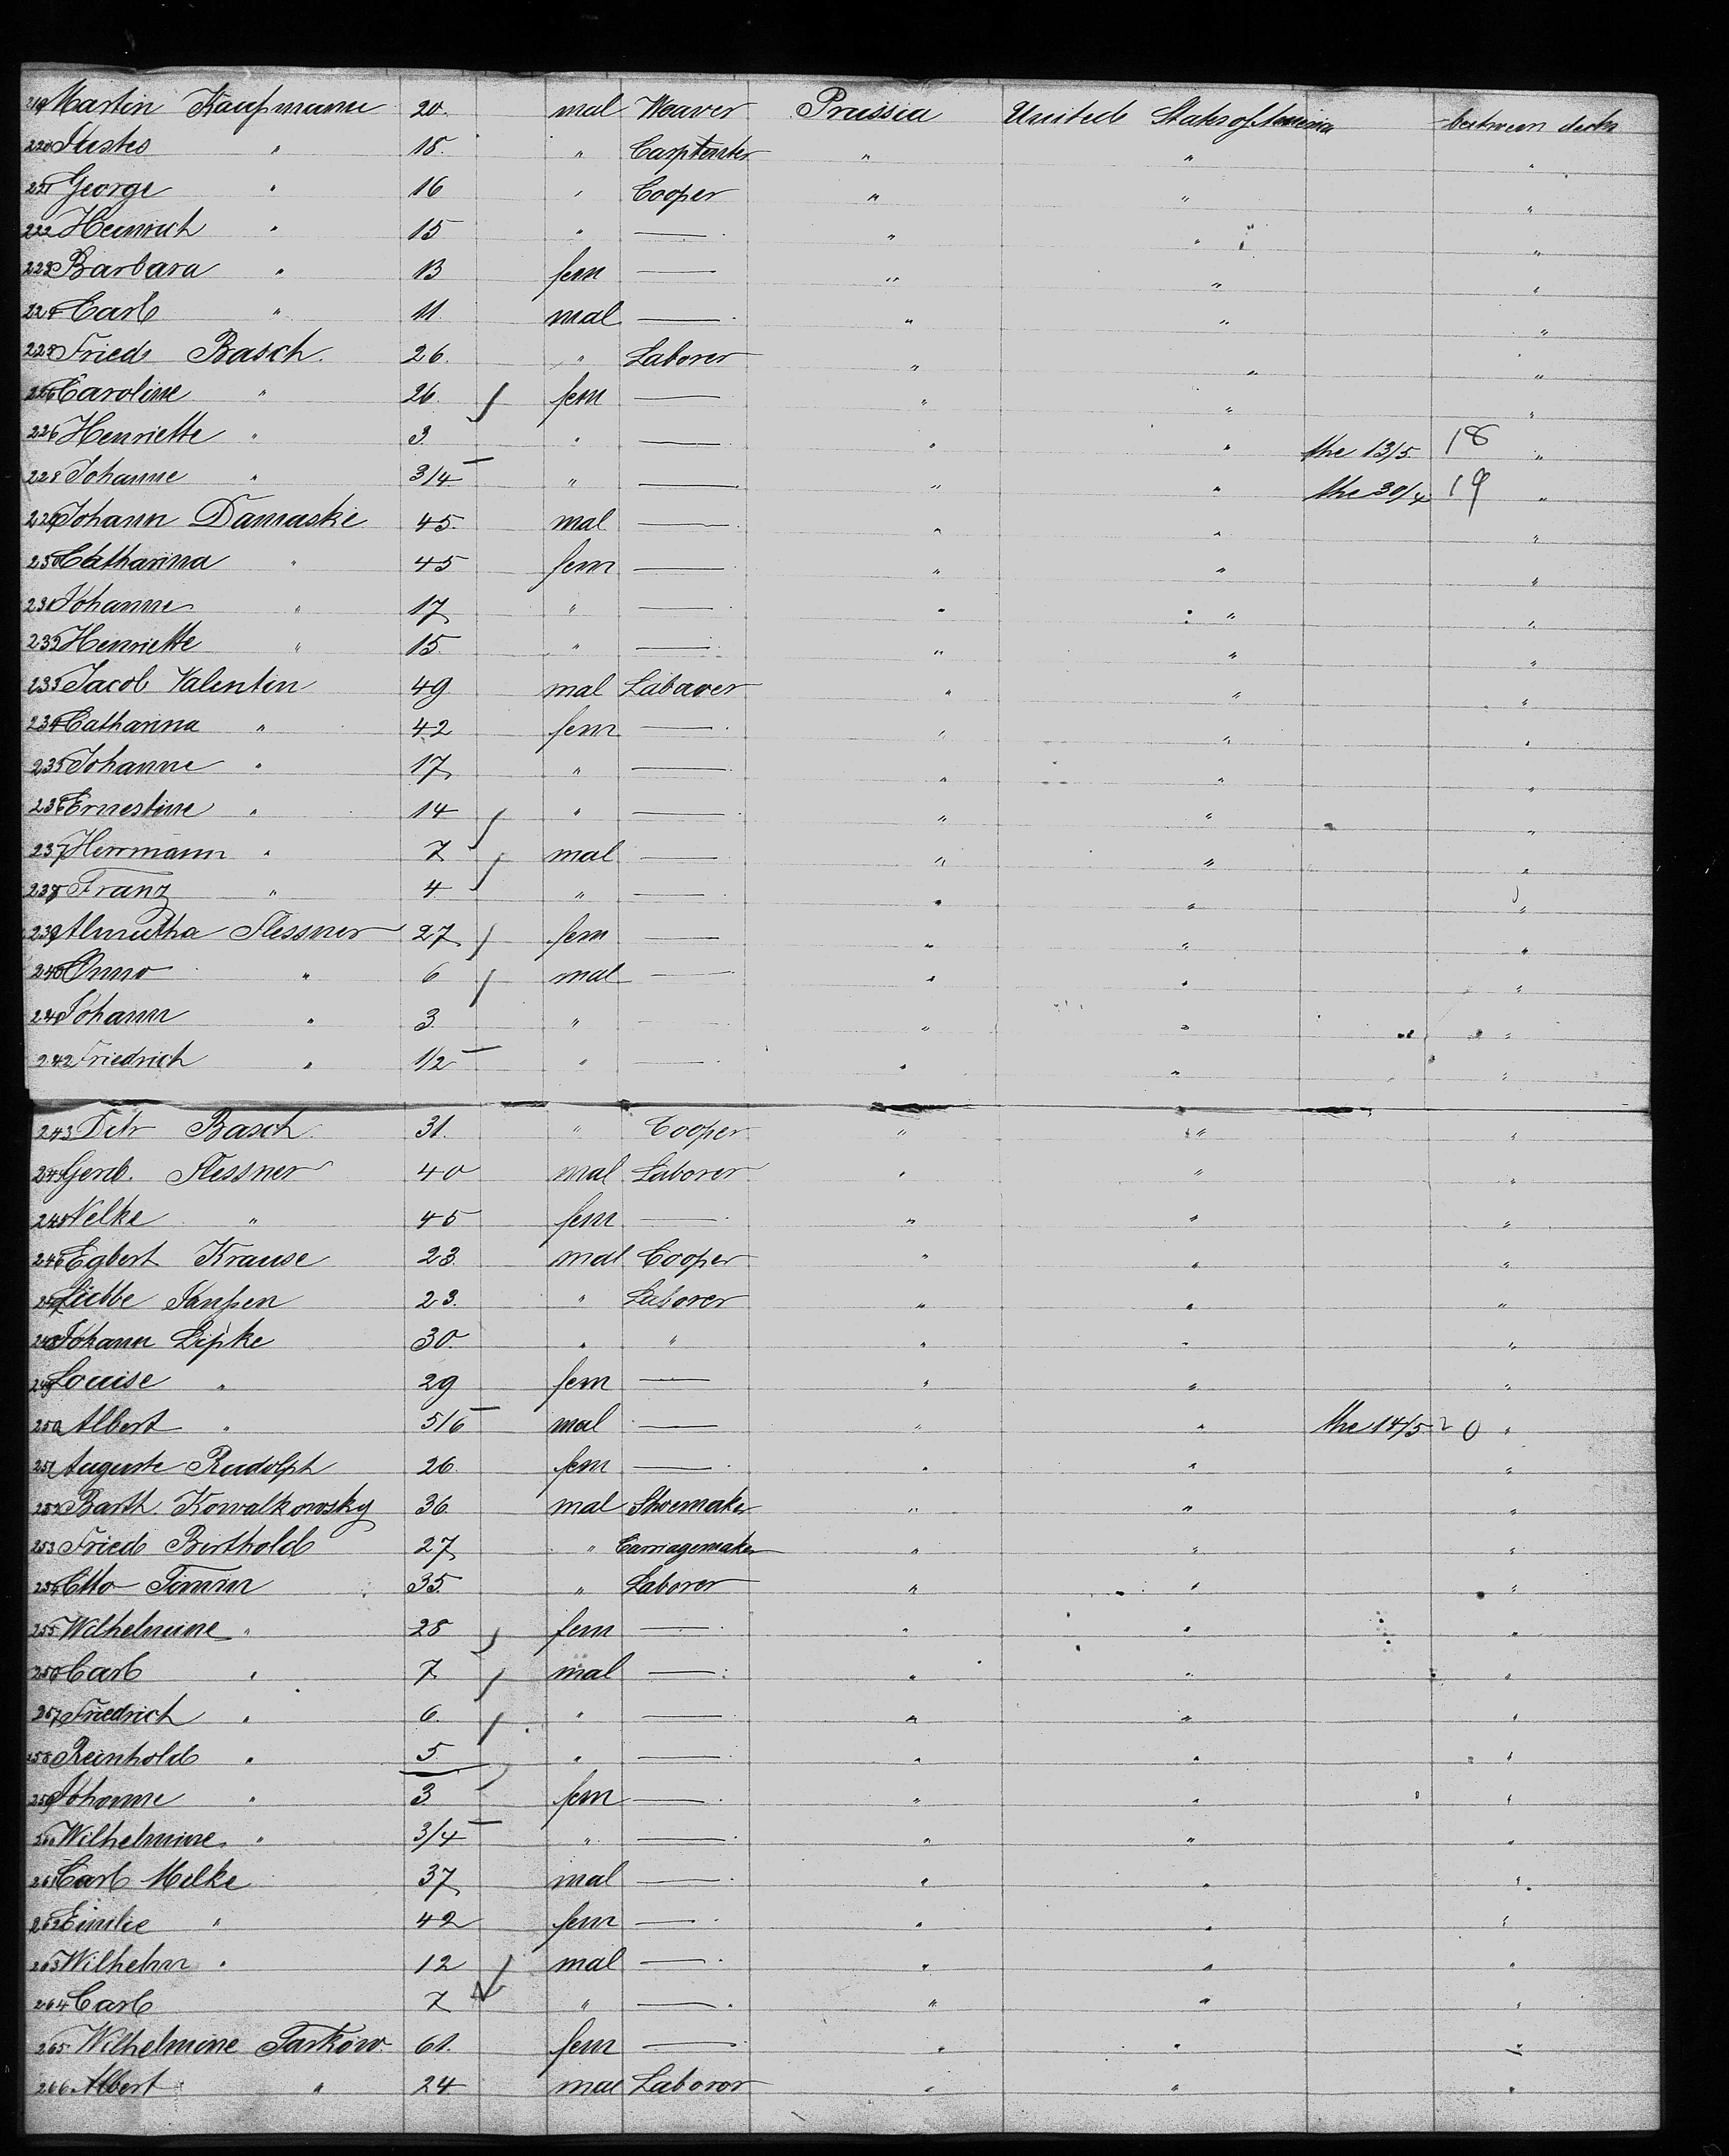 219 Martin Kaufmann 20. mal Weaver Prussia United States of America between decks
220 Justes " 18. " Carptenter " " "
221 George " 16 " Cooper " " "
222 Heinrich " 15 " — " " "
223 Barbara " 13 fem — " " "
224 Carl " 11 mal — " " "
225 Fried Basch. 26. " Laborer " " "
226 Caroline " 26. fem — " " "
226 Henriette " 3 " — " " the 13/5. 18 "
228 Johanne " 3/4 " — " " the 30/4 19 "
229 Johann Damaske 45. mal — " " "
230 Catharina " 45 fem — " " "
231 Johanne " 17 " — " " "
232 Henriette " 15. " — " " "
233 Jacob Valentin 49 mal Labaver " " "
234 Catharina " 42 fem — " " "
235 Johanne " 17 " — " " "
236 Ernestine " 14 " — " " "
237 Herrmann " 7 mal — " " "
238 Franz " 4 " — " " "
239 Almutha Flessner 27 fem — " " "
240 Onno " 6 mal — " " "
241 Johann " 3 " — " " "
242 Friedrich " 1/2 " — " " "
243 Detr Basch 31. " Cooper " " "
244 Gerd. Flessner 40 mal Laborer " " "
245 Nelke " 45 fem — " " "
246 Egbert Krause 23. mal Cooper " " "
247 Lübbe Janssen 23. " Laborer " " "
248 Johann Lipke 30. " " " " "
249 Louise " 29 fem — " " "
250 Albert " 5/6 mal — " " the 14/5 20 "
251 Auguste Rudolph 26. fem — " " "
252 Barth. Kowalkowsky 36. mal Shoemaker " " "
253 Fried Berthold 27 " Carriagemaker " " "
254 Otto Timm 35. " Laborer " " "
255 Wilhelmine " 28 fem — " " "
256 Carl " 7 mal — " " "
257 Friedrich " 6. " — " " "
258 Reinhold " 5 " — " " "
259 Johanne " 3 fem — " " "
260 Wilhelmine " 3/4 " — " " "
261 Carl Milke 37 mal — " " "
262 Emilie " 42 fem — " " "
263 Wilhelm " 12 mal — " " "
264 Carl 7 " — " " "
265 Wilhelmine Tarkow 61. fem — " " "
266 Albert " 24 mal Laboror " " "